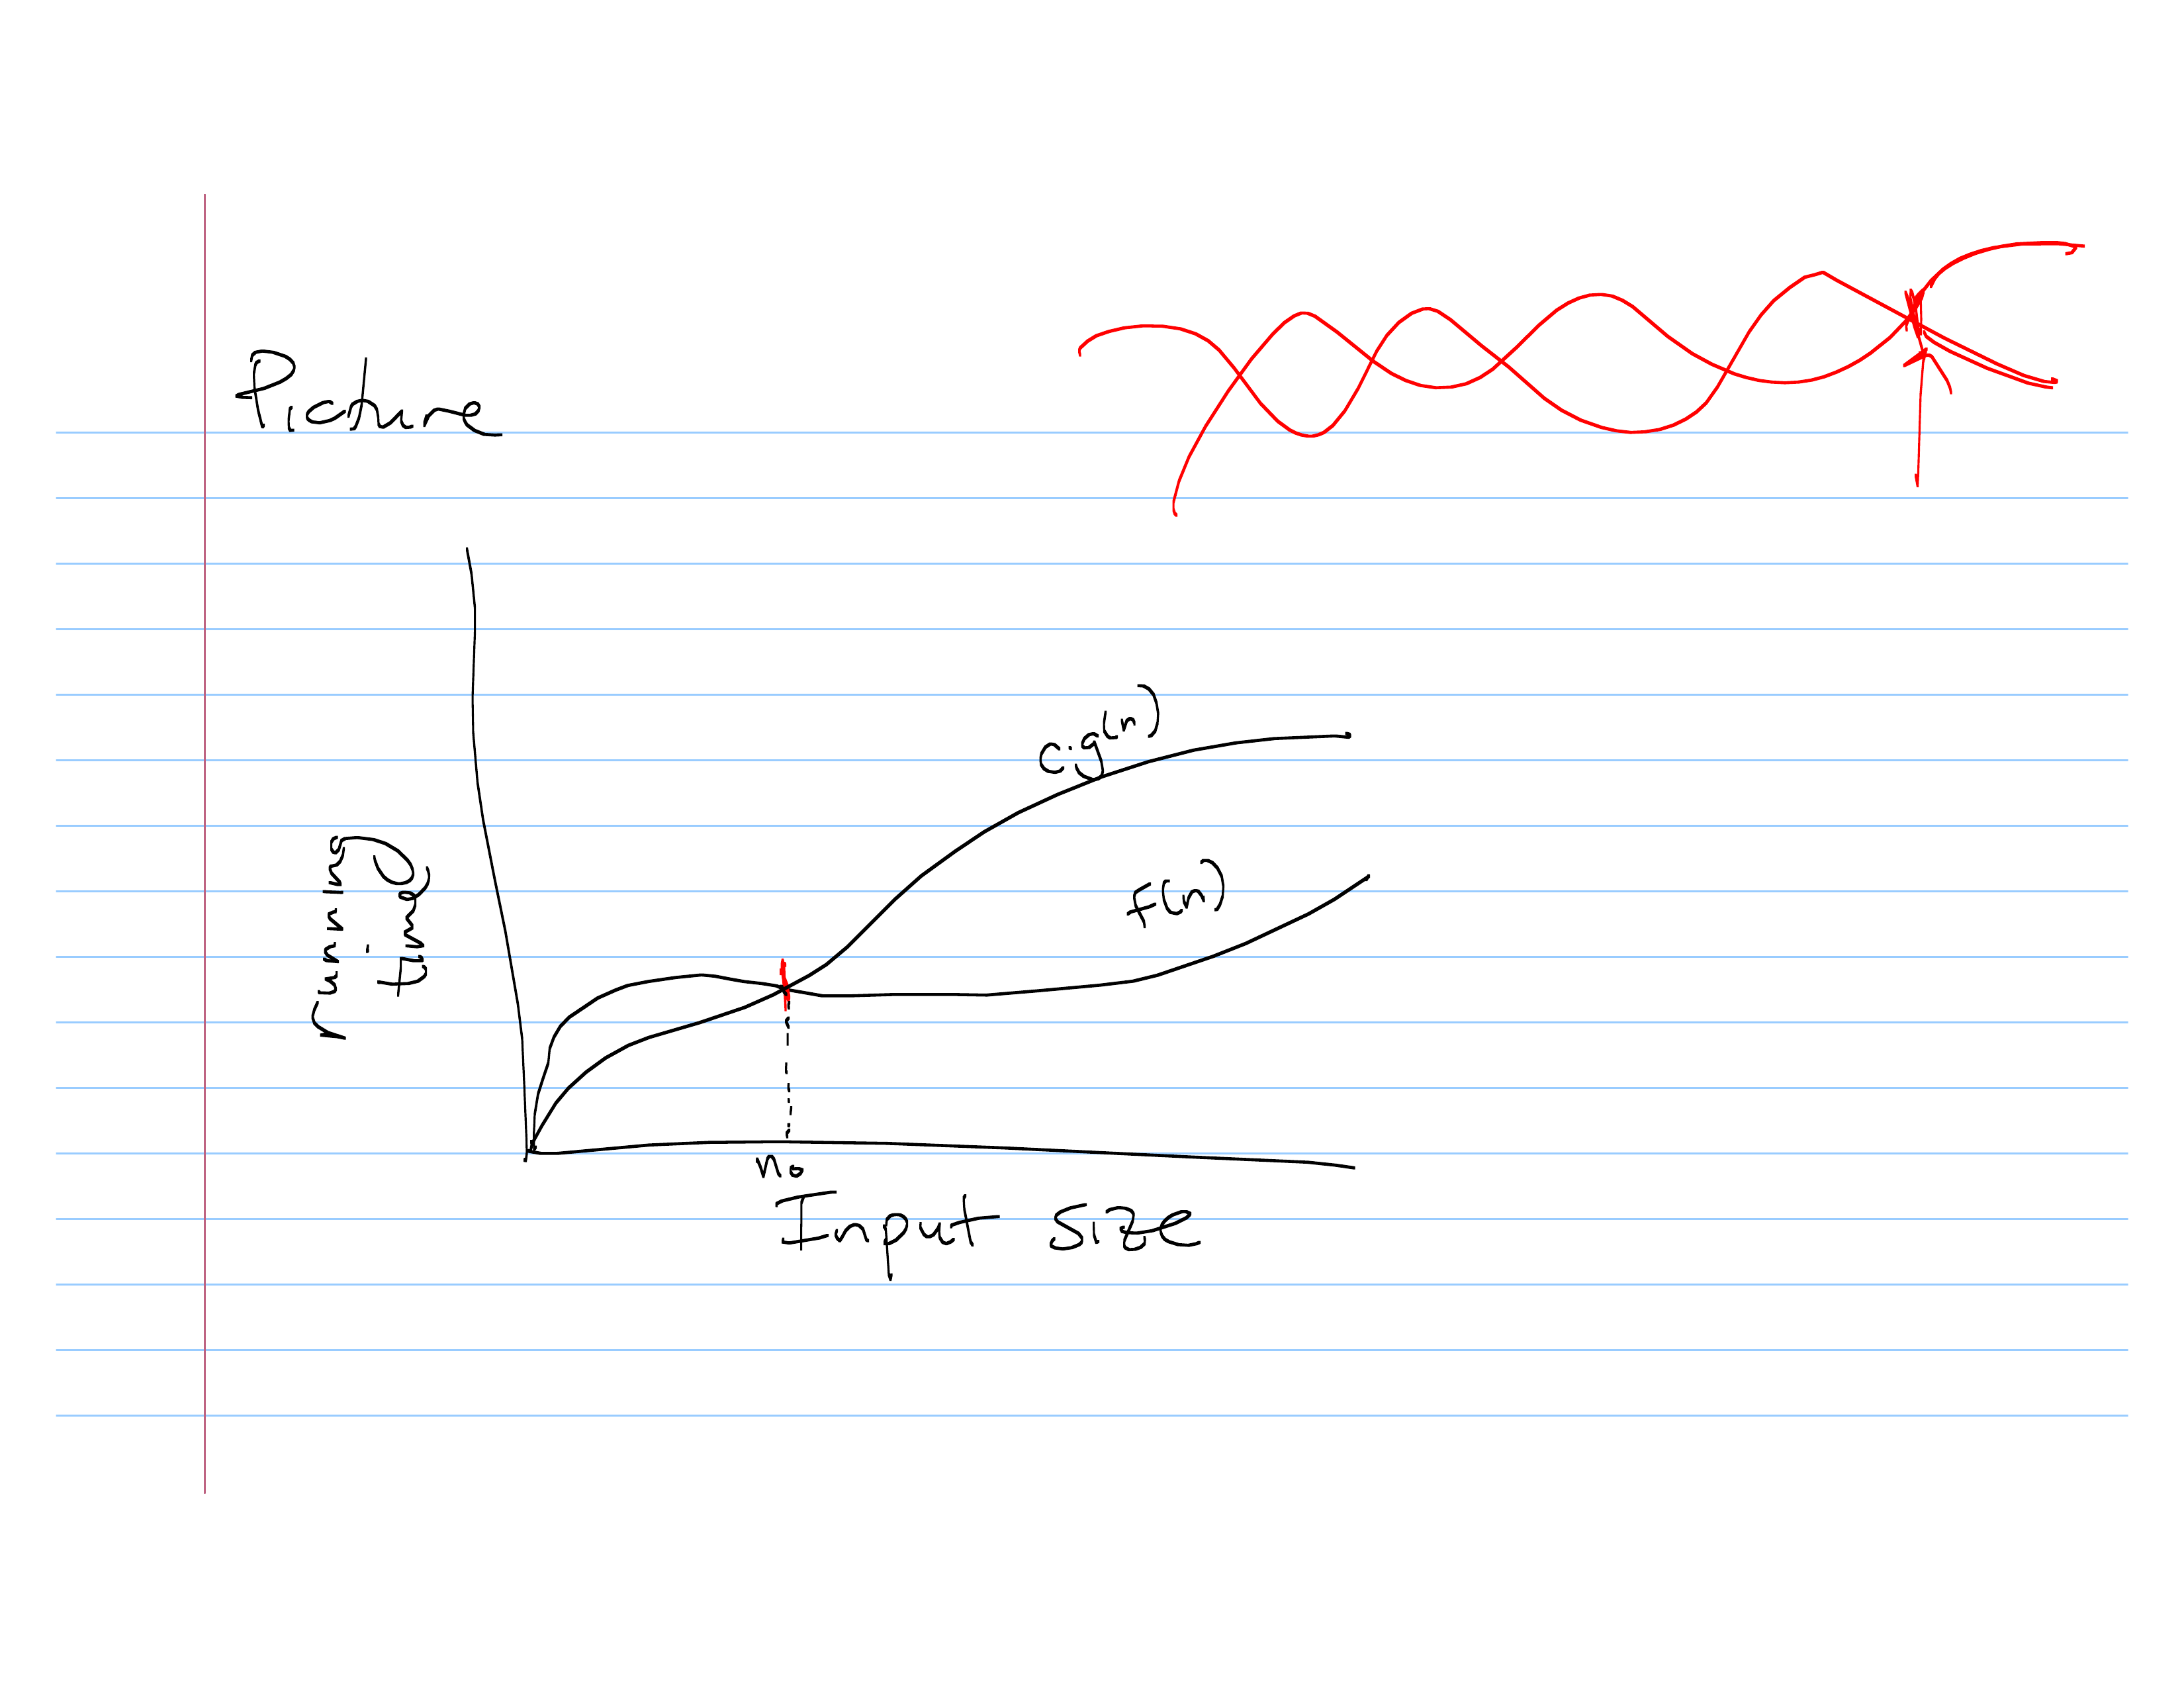 Picture
c·g(n)
f(n)
running
time
n₀
Input size